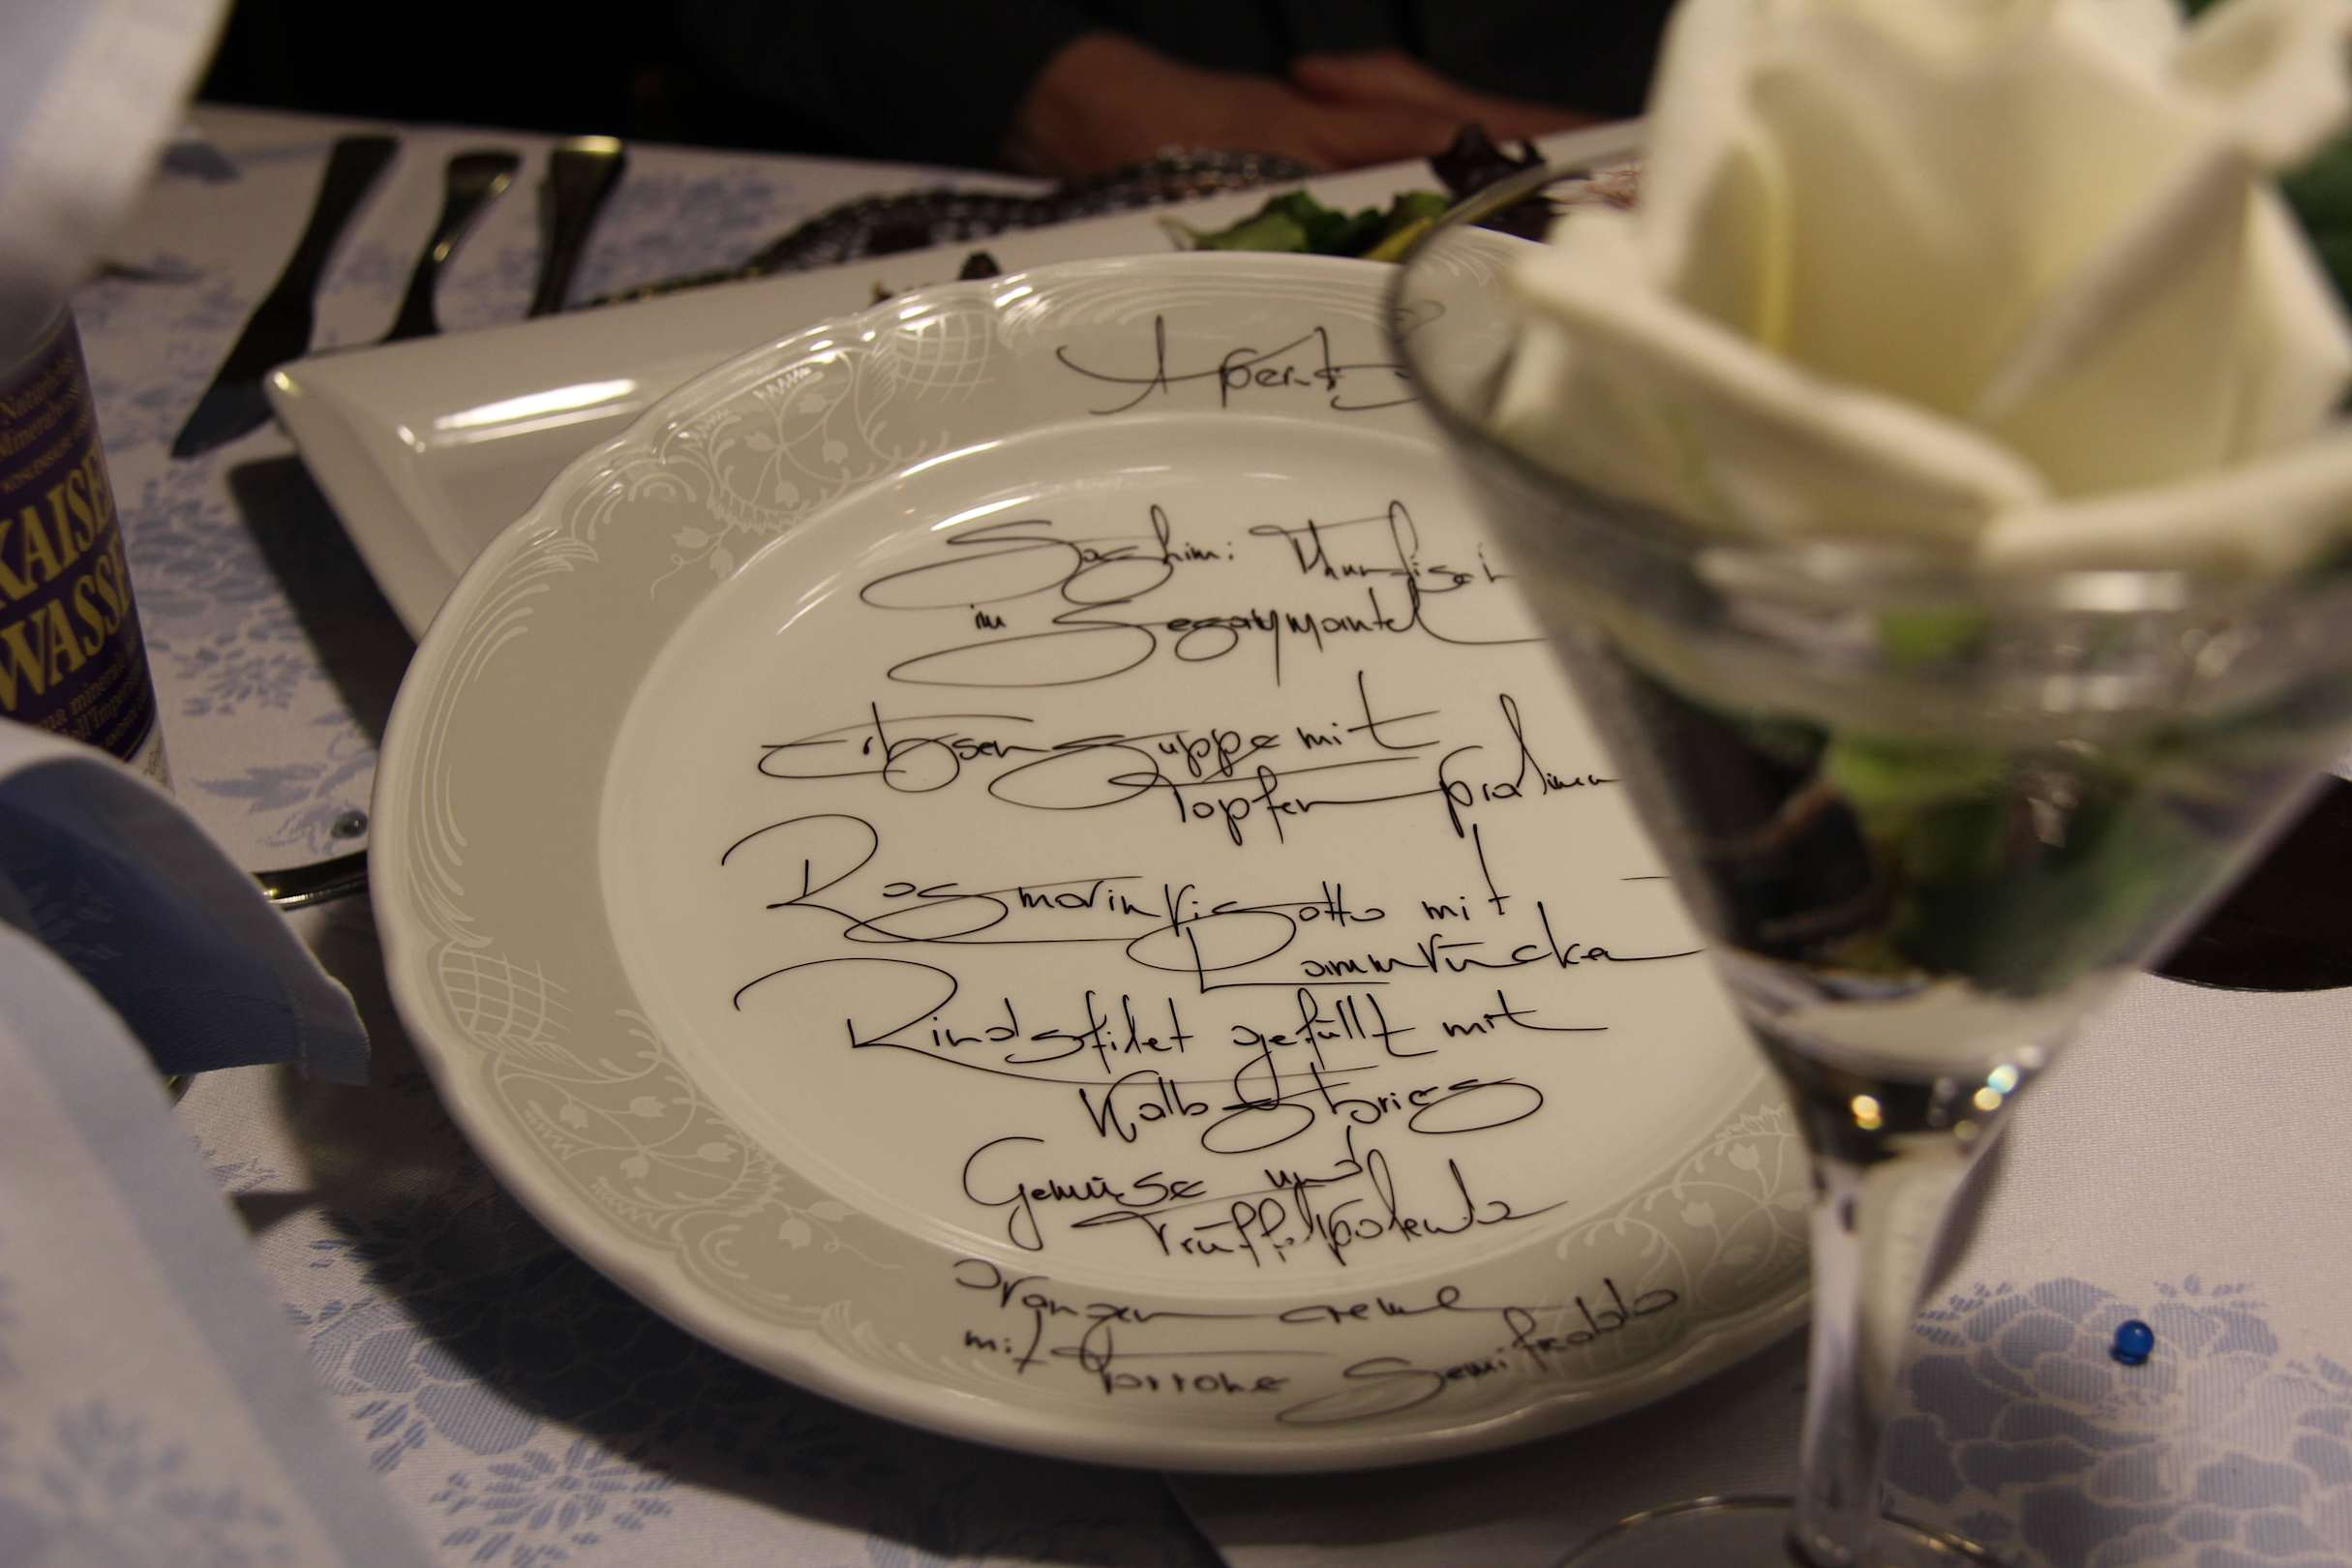 Natürliches
Mineralwasser
KAISER
WASSER
Sashimi Thunfisch
im Sesammantel
Erbsensuppe mit
Topfenpralinen
Rosmarinrisotto mit
Lammrücken
Rindsfilet gefüllt mit
Kalbsbries
Gemüse und
Trüffelpolenta
Orangencreme
mit Torrone Semifreddo